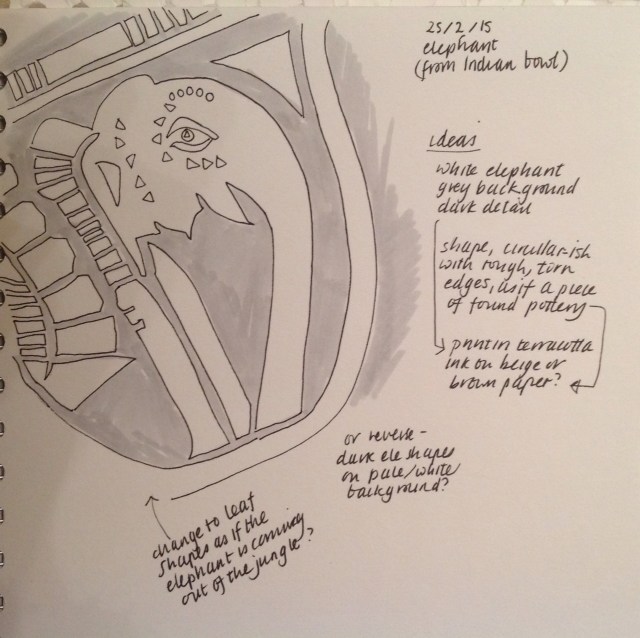 25/2/15
elephant
(from Indian bowl)
ideas
white elephant
grey background
dark detail
shape, circular-ish
with rough, torn
edges, as if a piece
of found pottery
print in terracotta
ink on beige or
brown paper?
or reverse -
dark ele shapes
on pale/white
background?
change to leaf
shapes as if the
elephant is coming
out of the jungle?